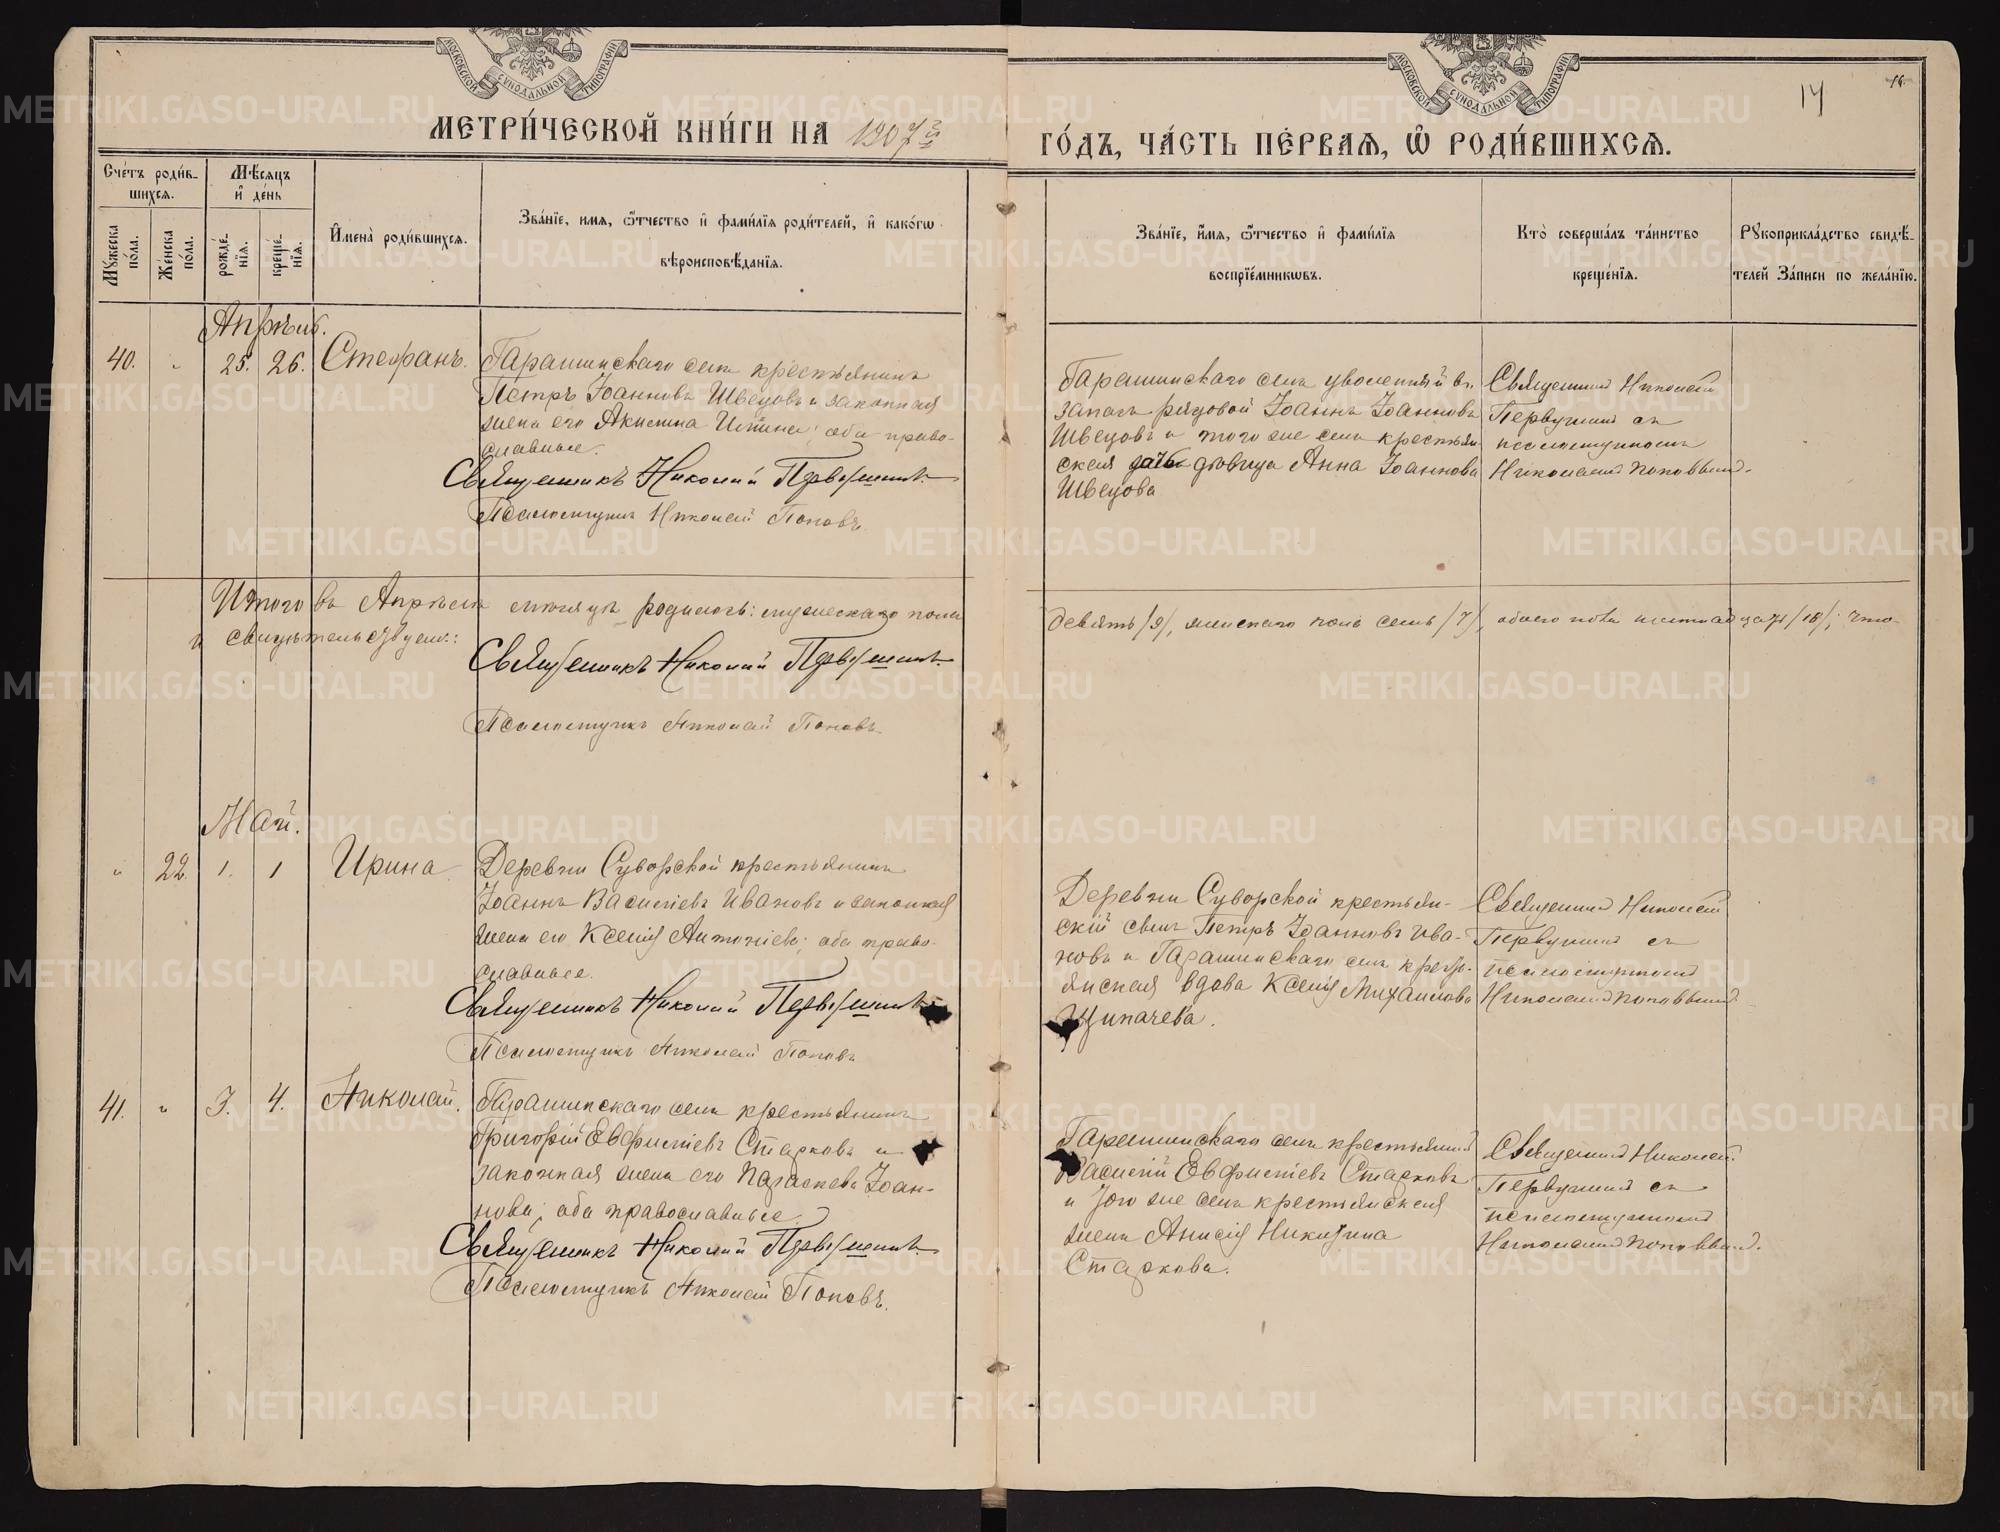 МОСКОВСКОЙ СѴНОДАЛЬНОЙ ТИПОГРАФІИ
МОСКОВСКОЙ СѴНОДАЛЬНОЙ ТИПОГРАФІИ
14
МЕТРИ́ЧЕСКОЙ КНИ́ГИ НА 1907й ГО́ДЪ, ЧА́СТЬ ПЕ́РВАЯ, Ѽ РОДИ́ВШИХСЯ.
Сче́тъ роди́в-
шихся.
Мѣ́сяцъ
и де́нь
Му́жеска по́ла.
Же́нска по́ла.
рожде́-
нїя.
креще́-
нїя.
Имена̀ роди́вшихся.
Зва́нїе, имя, ѻтчество и фами́лїя роди́телей, и како́гѡ
вѣроисповѣ́данїя.
Зва́нїе, имя, ѻтчество и фами́лїя
воспрїе́мникѡвъ.
Кто̀ соверша́лъ та́инство
креще́нїя.
Рукоприкла́дство свидѣ́-
телей За́писи по жела́нїю.
Апрѣль.
40. " 25. 26. Стефанъ.
Гарашинскаго села крестьянинъ
Петръ Іоанновъ Швецовъ и законная
жена его Акилина ; оба право-
славные.
Священникъ Николай Первушинъ
Псаломщикъ Николай Поповъ.
Гарашинскаго села уволенный въ
запасъ рядовой Іоаннъ Іоанновъ
Швецовъ и того же села крестьян-
ская дочь дѣвица Анна Іоаннова
Швецова
Священникъ Николай
Первушинъ съ
псаломщикомъ
Николаемъ Поповымъ.
Итого въ Апрѣлѣ мѣсяцѣ родилось: мужескаго пола девять /9/, женскаго пола семь /7/, обоего пола шестнадцать /16/; что
и свидѣтельствуемъ:
Священникъ Николай Первушинъ
Псаломщикъ Николай Поповъ.
Май.
" 22 1. 1 Ирина
Деревни Суворской крестьянинъ
Іоаннъ Васильевъ Ивановъ и законная
жена его Ксенія Антоніева; оба право-
славные.
Священникъ Николай Первушинъ
Псаломщикъ Николай Поповъ
Деревни Суворской крестьян-
скій сынъ Петръ Іоанновъ Ива-
новъ и Гарашинскаго села кресть-
янская вдова Ксенія Михаилова
Щипачева.
Священникъ Николай
Первушинъ съ
псаломщикомъ
Николаемъ Поповымъ
41. " 3. 4. Николай.
Гарашинскаго села крестьянинъ
Григорій Евфиміевъ Старковъ и
законная жена его Параскева Іоан-
нова; оба православные
Священникъ Николай Первушинъ
Псаломщикъ Николай Поповъ.
Гарашинскаго села крестьянинъ
Василій Евфиміевъ Старковъ
и того же села крестьянская
жена Анисія Никитина
Старкова.
Священникъ Николай
Первушинъ съ
псаломщикомъ
Николаемъ Поповымъ.
METRIKI.GASO-URAL.RU